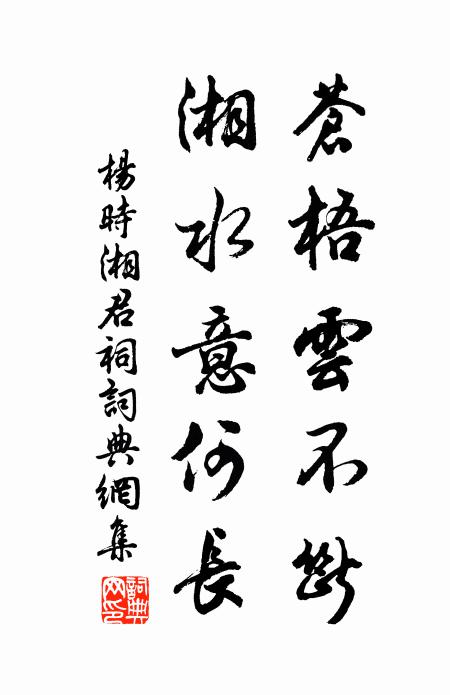 蒼梧雲不斷
湘水意何長
楊時湘君祠詞典網集
詞典網印